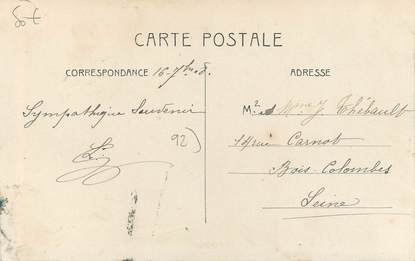 CARTE POSTALE
CORRESPONDANCE 16-7bre 08.
Sympathique Souvenir
92)
ADRESSE
M. et Mme J. Thébault
14 rue Carnot
Bois-Colombes
Seine